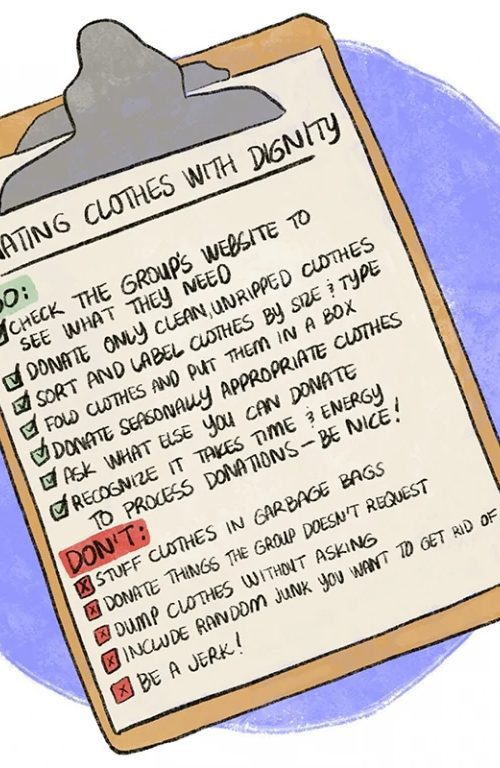 ATING CLOTHES WITH DIGNITY
DO:
CHECK THE GROUP'S WEBSITE TO
SEE WHAT THEY NEED
DONATE ONLY CLEAN, UNRIPPED CLOTHES
SORT AND LABEL CLOTHES BY SIZE & TYPE
FOLD CLOTHES AND PUT THEM IN A BOX
DONATE SEASONALLY APPROPRIATE CLOTHES
ASK WHAT ELSE YOU CAN DONATE
RECOGNIZE IT TAKES TIME & ENERGY
TO PROCESS DONATIONS — BE NICE!
DON'T:
STUFF CLOTHES IN GARBAGE BAGS
DONATE THINGS THE GROUP DOESN'T REQUEST
DUMP CLOTHES WITHOUT ASKING
INCLUDE RANDOM JUNK YOU WANT TO GET RID OF
BE A JERK!